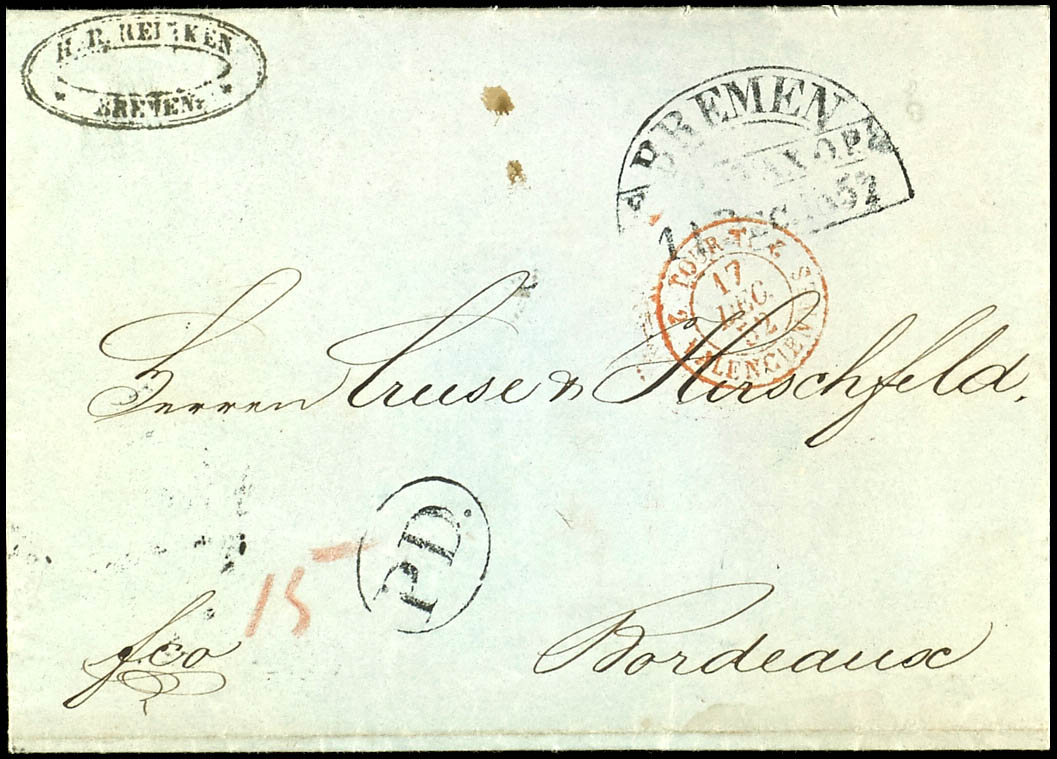 H. R. REINKEN
BREMEN
BREMEN
DEC. 1852
2 TOUR-T. 2
17
DEC.
52
VALENCIENNES
Herren Cruse & Hirschfeld,
P.D.
15
fco
Bordeaux